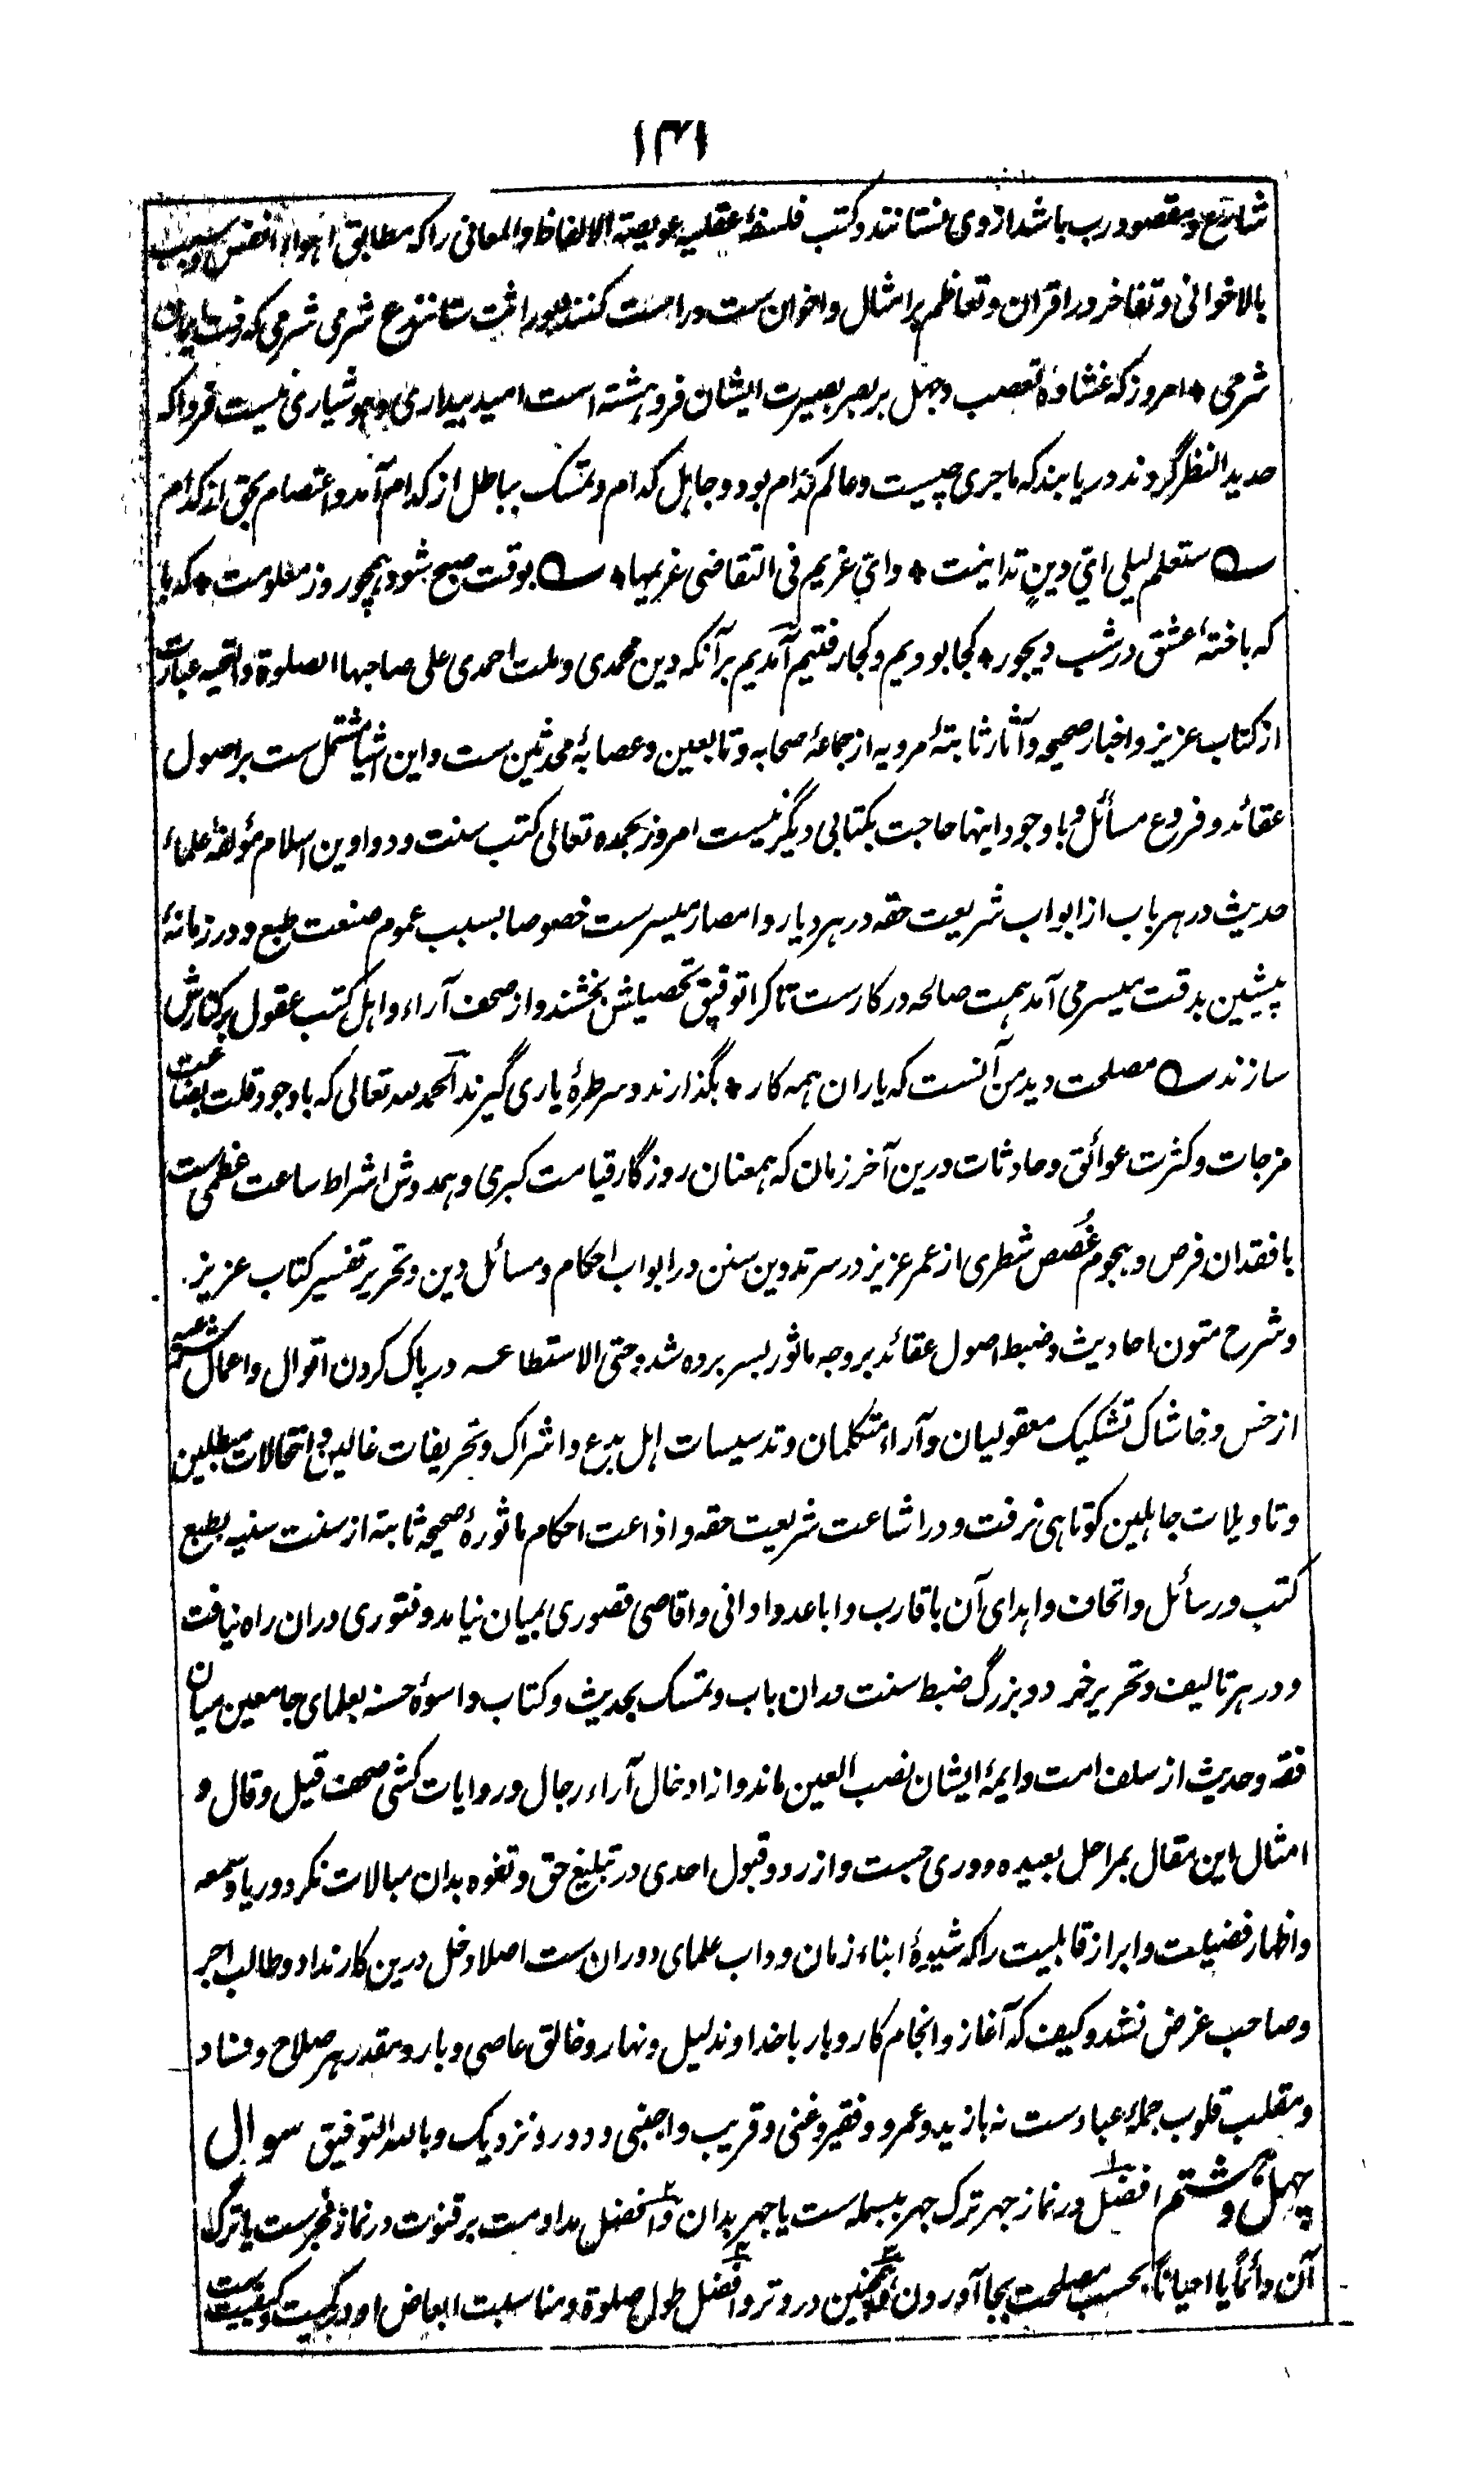 ۱۴۱
شارع و مقصود رب باشد ازوی نستانند و کتب فلسفهٔ عقلیه عویصة الالفاظ والمعانی را که مطابق اهواء انفس و سبب
بالاخوانی و تفاخر در اقران و تعاظم بر امثال و اخوان ست وراست کنند شرمی شرمی که رفت ایمان
شرمی * امروز که غشاوهٔ تعصب و جهل بر بصر بصیرت ایشان فروهشته است امید بیداری و هوشیاری نیست فردا که
حدید النظر گردند دریابند که ماجری چیست و عالم کدام بود و جاهل کدام و تمسک بباطل از کدام آمد و اعتصام بحق از کدام
ستعلم لیلی ایّ دینٍ تداینت * وایّ غریم فی التقاضی غریمها * بوقت صبح شود همچو روز معلومت * که با
که باختهٔ عشق در شب دیجور * کجا بودیم و کجا رفتیم آمدیم برآنکه دین محمدی و ملت احمدی علی صاحبها الصلوة والتحیه عبارت
از کتاب عزیز و اخبار صحیحه و آثار ثابتهٔ مرویه از جماعهٔ صحابه و تابعین و عصابهٔ محدثین ست و این اشیا مشتمل ست بر اصول
عقائد و فروع مسائل و با وجود اینها حاجت بکتابی دیگر نیست امروز بحمده تعالی کتب سنت و دواوین اسلام مؤلفهٔ علماء
حدیث در هر باب از ابواب شریعت حقه در هر دیار و امصار میسرست خصوصا بسبب عموم صنعت طبع و در زمانهٔ
پیشین بدقت میسر می آمد همت صالحه در کارست تا کرا توفیق تحصیلش بخشند و از صحف آراء و اهل کتب عقول بر کنارش
سازند مصلحت دید من آنست که یاران همه کار * بگذارند و سر طرهٔ یاری گیرند الحمد لله تعالی که باوجود قلت بضاعت
مزجات و کثرت عوائق و حادثات درین آخر زمان که همعنان روزگار قیامت کبری و همدوش اشراط ساعت عظمی ست
با فقدان فرص و هجوم غُصص شطری از عمر عزیز در سر تدوین سنن در ابواب احکام و مسائل دین و تحریر تفسیر کتاب عزیز
و شرح متون احادیث و ضبط اصول عقائد بروجه ماثور بسر برده شد و حتی الاستطاعه در پاک کردن اقوال و اعمال
از خس و خاشاک تشکیک معقولیان و آراء متکلمان و تدسیسات اهل بدع و اشراک و تحریفات غالین و انتحالات مبطلین
و تاویلات جاهلین کوتاهی نرفت و در اشاعت شریعت حقه و اذاعت احکام ماثورهٔ صحیحه ثابته از سنت سنیه بطبع
کتب و رسائل و اتحاف و اهدای آن باقارب و اباعد و ادانی و اقاصی قصوری بمیان نیامد و فتوری دران راه نیافت
و در هر تالیف و تحریر خرد و بزرگ ضبط سنت دران باب و تمسک بحدیث و کتاب و اسوهٔ حسنه بعلمای جامعین میان
فقه و حدیث از سلف امت و ایمهٔ ایشان نصب العین ماند و از ادخال آراء رجال و روایات کشی صحف قیل و قال و
امثال این مقال بمراحل بعیده دوری جست و از رد و قبول احدی در تبلیغ حق و تفوه بدان مبالات نکرد و ریا و سمعه
و اظهار فضیلت و ابراز قابلیت را که شیوهٔ ابناء زمان و داب علمای دوران ست اصلا دخل درین کار نداد و طالب اجر
و صاحب غرض نشد و کیف که آغاز و انجام کاروبار باخداوند لیل و نهار و خالق عاصی و بار و مقدر هر صلاح و فساد
و مقلب قلوب جملهٔ عبادست نه بازید و عمرو و فقیر و غنی و قریب و اجنبی و دور و نزدیک و بالله التوفیق سوال
چهل و هشتم افضل در نماز جهر ترک جهر ببسمله ست یا جهر بدان و افضل مداومت بر قنوت در نماز فجرست یا ترک
آن دائماً یا احیاناً بحسب مصلحت بجا آوردن و همچنین در وتر و افضل طول صلوة و مناسبت ابعاض او در کمیت و کیفیت ست